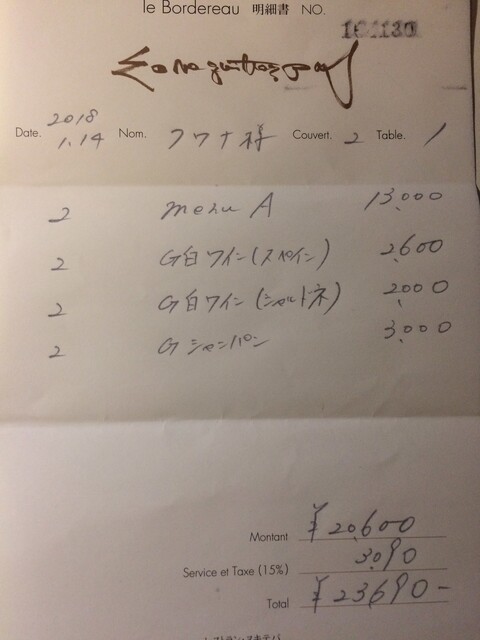 le Bordereau 明細書 NO.
Date. 2018 1.14 Nom. フワナ様 Couvert. 2 Table. 1
2 menu A 13.000
2 G白ワイン(スペイン) 2.600
2 G白ワイン(シャルドネ) 2.000
2 Gシャンパン 3.000
Montant ¥20.600
Service et Taxe (15%) 3.090
Total ¥23690-